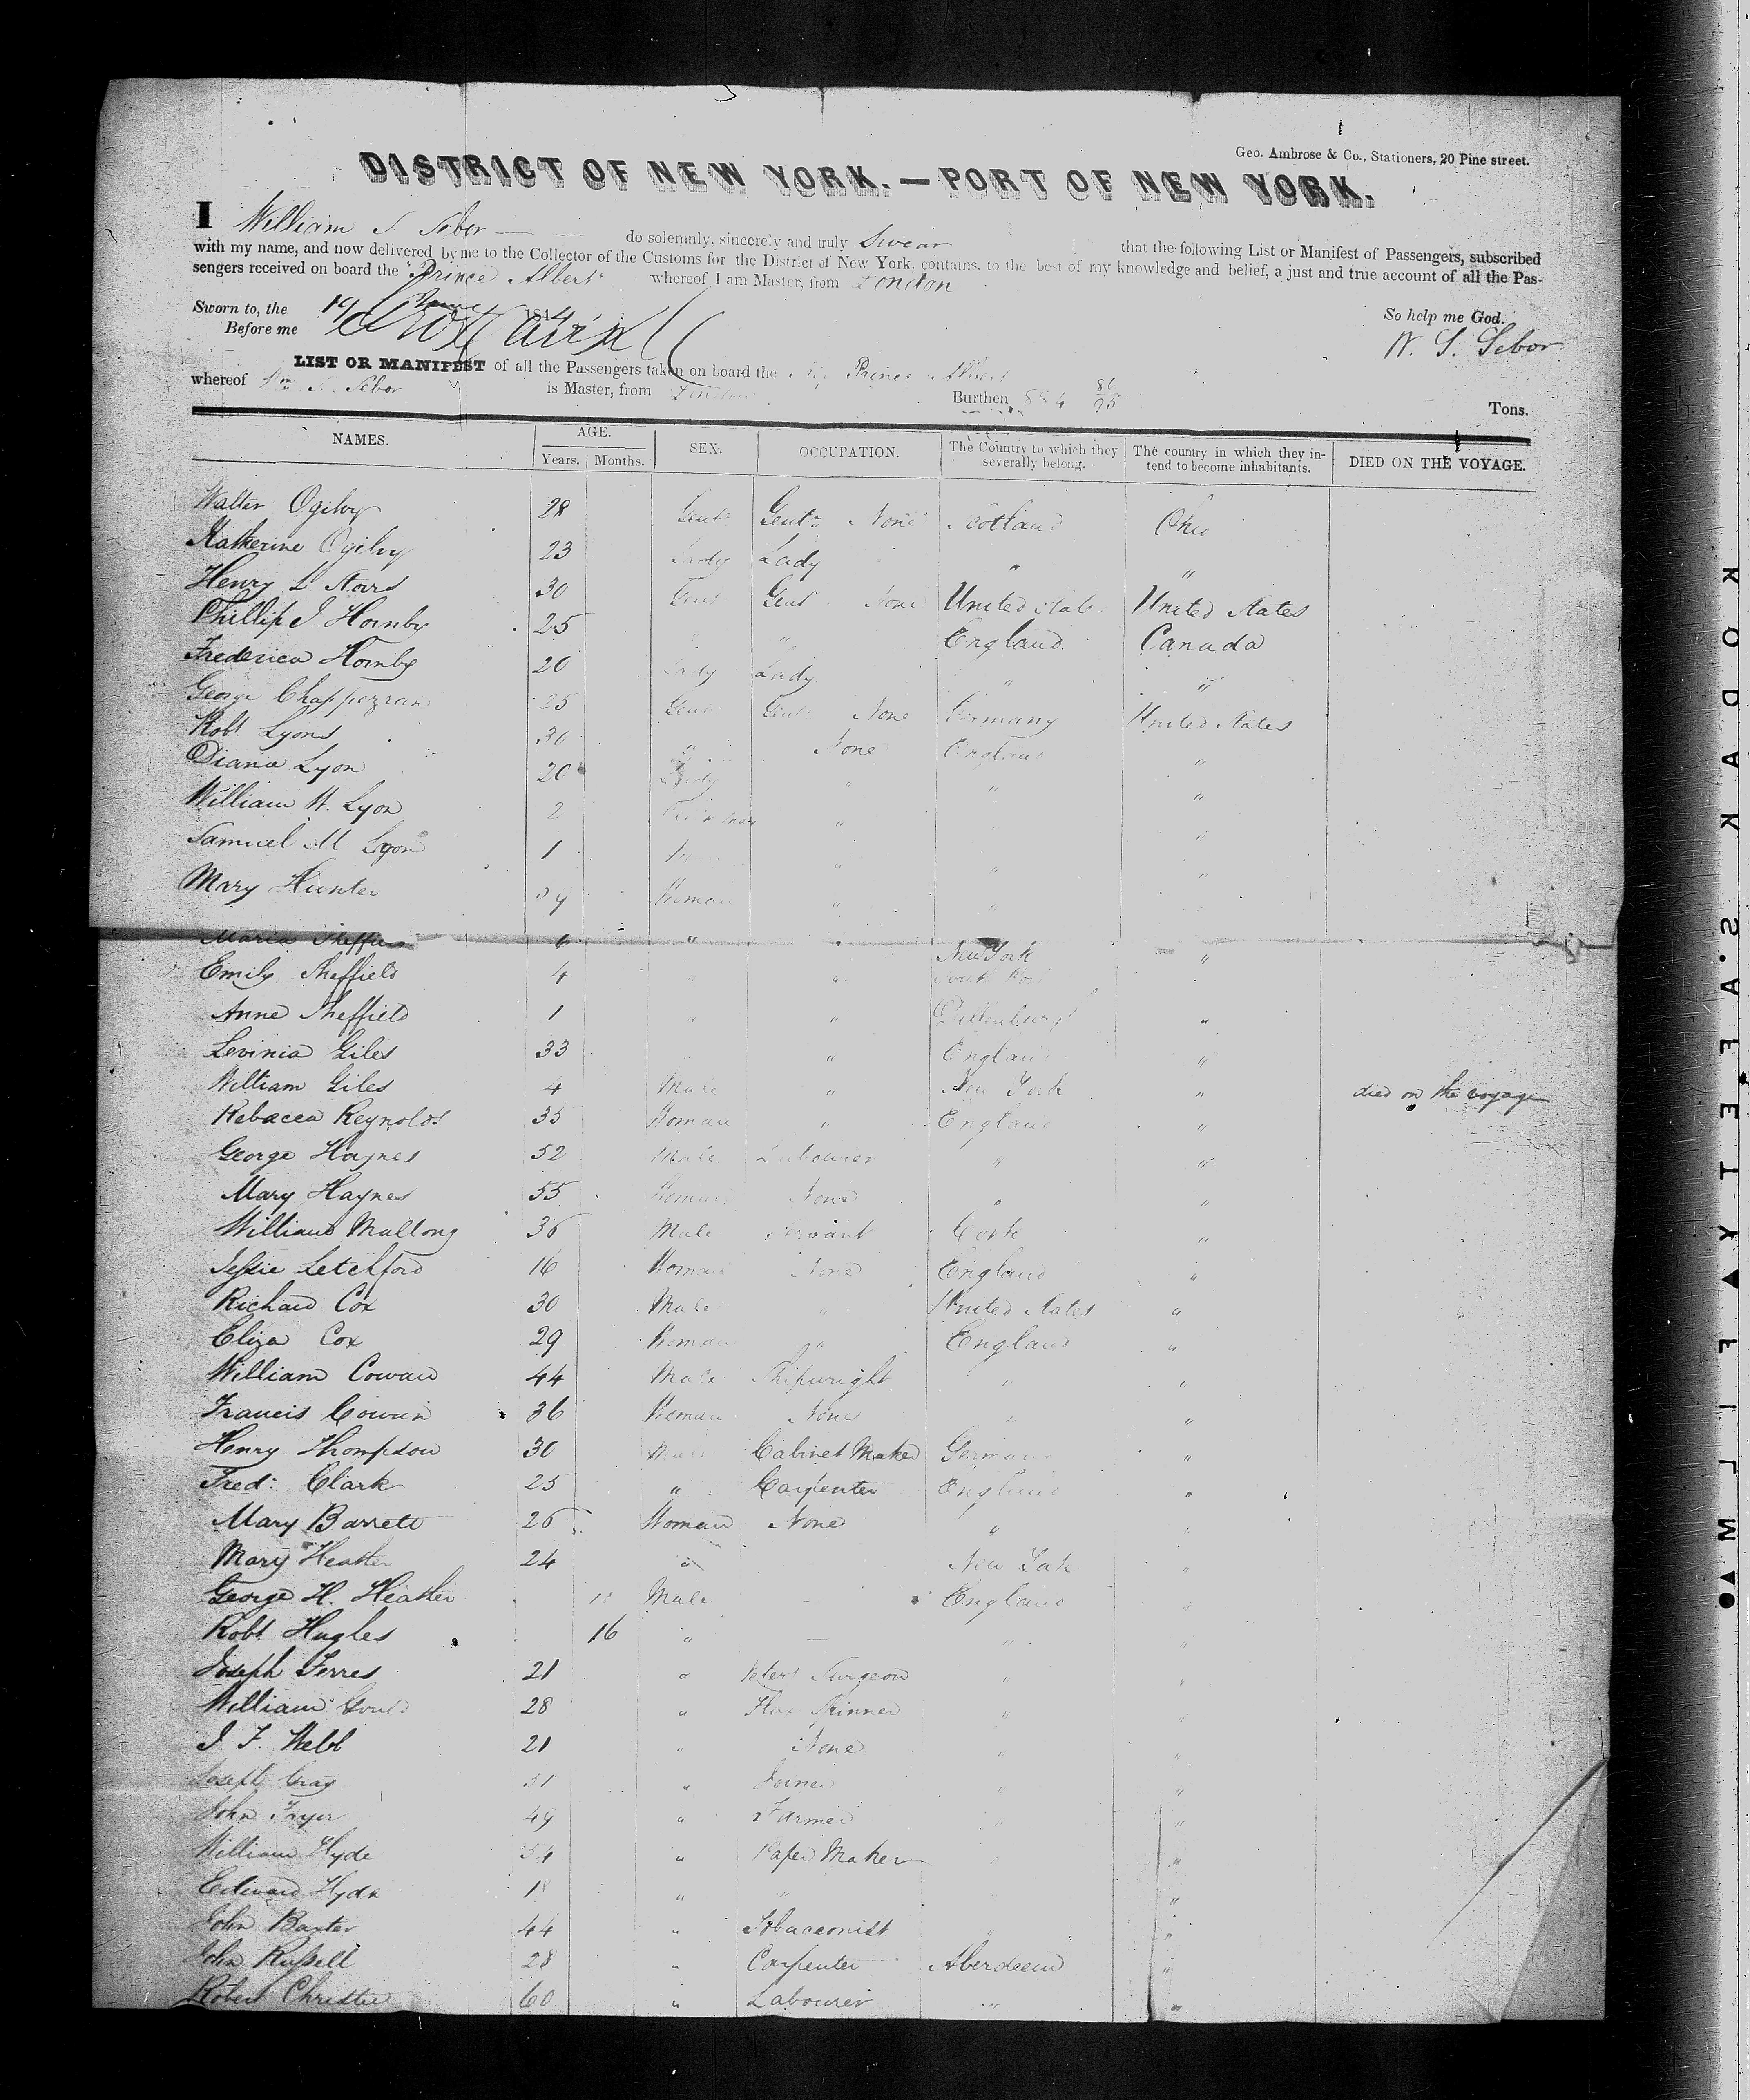 Geo. Ambrose & Co., Stationers, 20 Pine street.
DISTRICT OF NEW YORK. — PORT OF NEW YORK.
I William S. Sebor do solemnly, sincerely and truly Swear that the following List or Manifest of Passengers, subscribed
with my name, and now delivered by me to the Collector of the Customs for the District of New York, contains, to the best of my knowledge and belief, a just and true account of all the Pas-
sengers received on board the Prince Albert whereof I am Master, from London
Sworn to, the 19 184
Before me
So help me God.
W. S. Sebor
LIST OR MANIFEST of all the Passengers taken on board the Ship Prince Albert
whereof Wm S. Sebor is Master, from London Burthen 884 86/95 Tons.
NAMES. AGE. Years. Months. SEX. OCCUPATION. The Country to which they severally belong. The country in which they intend to become inhabitants. DIED ON THE VOYAGE.
Walter Ogilvy 28 Gentn Gentn None Scotland Ohio
Katherine Ogilvy 23 Lady Lady " "
Henry L Starrs 30 Gent Gent None United States United States
Phillip J Hornby 25 " " England Canada
Frederica Hornby 20 Lady Lady " "
George 25 Gent Gent None Germany United States
Robt Lyons 30 " None England "
Diana Lyon 20 Lady " " "
William W. Lyon 2 " "
Samuel M Lyon 1 " " "
Mary Hunter Woman " "
Maria Sheffield 6 " " New York "
Emily Sheffield 4 " "
Anne Sheffield 1 " " "
Levinia Giles 33 " England "
William Giles 4 Male " New York " died on the voyage
Rebacca Reynolds 35 Woman " England "
George Haynes 52 Male Labourer " "
Mary Haynes 55 Woman None " "
William Mallong 36 Male Servant Cork "
Jessie Letchford 16 Woman None England "
Richard Cox 30 Male " United States "
Eliza Cox 29 Woman " England "
William Cowan 44 Male Shipwright " "
Francis Cowan 36 Woman None " "
Henry Thompson 30 Male Cabinet Maker Germany "
Fred: Clark 25 " Carpenter England "
Mary Barrett 26 Woman None " "
Mary Heather 24 " New York "
George H. Heather Male England "
Robt Hughes 16 " — " "
Joseph Ferres 21 " Surgeon " "
William Gould 28 " " "
J F. Webb 21 " None " "
Joseph Gray 31 " Joiner " "
John Fryer 49 " Farmer " "
William Hyde 54 " Paper Maker " "
Edward Hyde 18 " " "
John Baxter 44 " Tobacconist "
John Russell 28 " Carpenter Aberdeen "
Robert Christie 60 " Labourer " "
KODAK S.AFETY FILM